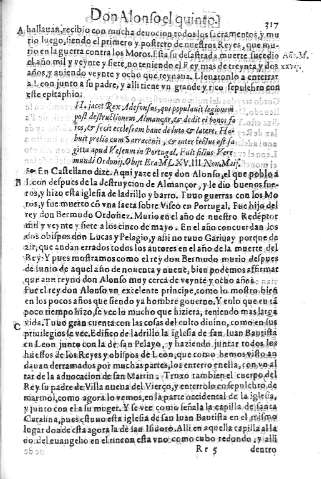 Don Alonso el quinto. 317
A hallauan, recibio con mucha deuocion todos los sacramentos, y mu
rio luego, siendo el primero y postrero de nuestros Reyes, que mu-
rio en la guerra contra los Moros. Esta su desastrada muerte sucedio Año M.
el año mil y veynte y siete, no teniendo el Rey mas de treynta y dos xxvij.
años, y auiendo veynte y ocho que reynaua. Lleuaronlo a enterrar
a Leon junto a su padre, y alli tiene vn grande y rico sepulchro con
este epitaphio:
H. jacet Rex Adefonsus, qui populauit legionem
post destructionem Almanzor, & dedit ei bonos fo
ros, & fecit ecclesiam hanc de luto & latere. Ha-
buit prælia cum Sarracenis, & interfectus est sa-
gitta apud Viseum in Portugal. Fuit filius Vere
mundi Ordonij. Obijt Era M.LXV. III. Non. Maij.
En Castellano dize. Aqui yaze el rey don Alonso, el que poblo a
B Leon despues de la destruycion de Almançor, y le dio buenos fue-
ros, y hizo esta iglesia de ladrillo y barro. Tuuo guerras con los Mo
ros, y fue muerto cõ vna saeta sobre Viseo en Portugal. Fue hijo del
rey don Bermudo Ordoñez. Murio en el año de nuestro Redẽptor
mil y veynte y siete a los cinco de mayo. En el año concuerdan los
dos obispos don Lucas y Pelagio, y assi no tuuo Gariuay porque de
zir, que andan errados todos los autores en el año de la muerte del
Rey. Y pues mostramos como el rey don Bermudo murio despues
de junio de aquel año de nouenta y nueue, bien podemos affirmar
que aun reynó don Alonso muy cerca de veynte y ocho años.
Fue el rey don Alonso vn excelente principe, como lo mostro bien
en los pocos años que siendo ya hombre gouerno. Y en lo que en tã
poco tiempo hizo, se vee lo mucho que hiziera, teniendo mas larga
C vida. Tuuo gran cuenta con las cosas del culto diuino, como en sus
priuilegios se vee. Edifico de ladrillo la iglesia de san Iuan Baptista
en Leon junto con la de san Pelayo, y haziendo juntar todos los
huessos de los Reyes y obispos de Leon, que como hemos visto an
dauan derramados por muchas partes, los enterro en ella, con vn al
tar de la aduocacion de san Martin. Truxo tambien el cuerpo del
Rey su padre de Villa nueua del Vierço, y enterrolo en sepulchro de
marmol, como agora lo vemos, en la parte occidental de la iglesia,
y junto con el a su muger. Y se vee como señala la capilla de santa
Catalina, pues estuuo esta iglesia de san Iuan Baptista en el mismo
lugar donde esta agora la de san Isidoro. Alli en aquella capilla al la
do del euangelio en el rincon esta vno como cubo redondo, y alli
Rr 5 dentro